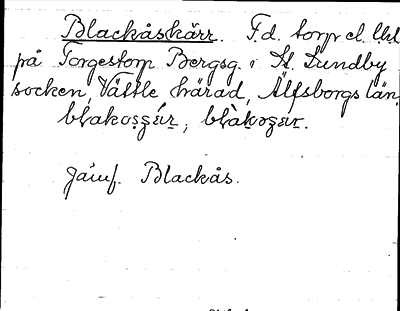 Blackåskärr. F.d. torp el. lht
på Torgestorp Bergsg. i St. Lundby
socken, Vättle härad, Älfsborgs län.
Jämf. Blackås.